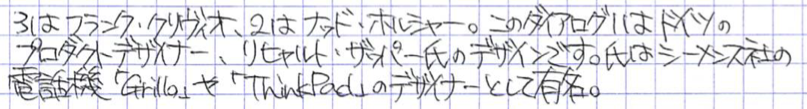 31はフランク・クリヴィオ、21はナッド・ホルシャー。このダイアログ11はドイツの
プロダクトデザイナー、リヒャルト・ザッパー氏のデザインです。氏はシーメンス社の
電話機「Grillo」や「ThinkPad」のデザイナーとして有名。